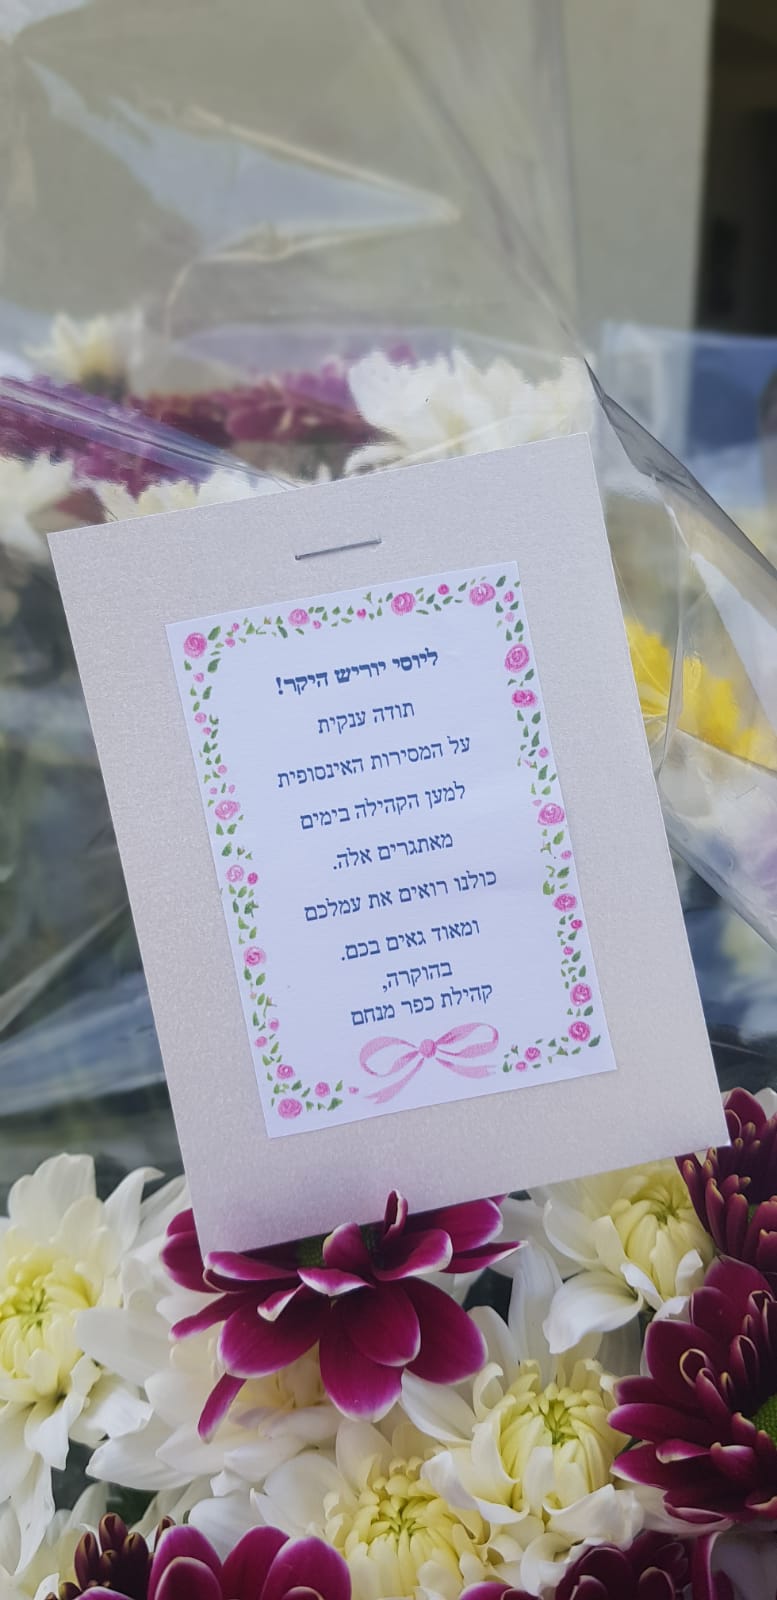 ליוסי יוריש היקר!
תודה ענקית
על המסירות האינסופית
למען הקהילה בימים
מאתגרים אלה.
כולנו רואים את עמלכם
ומאוד גאים בכם.
בהוקרה,
קהילת כפר מנחם